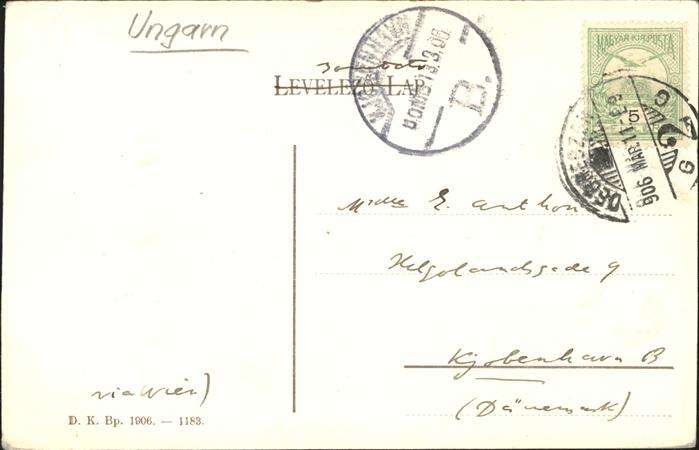 Ungarn
LEVELEZŐ-LAP.
MAGYAR KIR. POSTA
KJØBENHAVN
OMB 13.3.06
B.
5
906 MÁR. 11
Mdlle E. Anthon
Helgolandsgade 9
Kjøbenhavn B
(Dänemark)
via Wien)
D. K. Bp. 1906. — 1183.